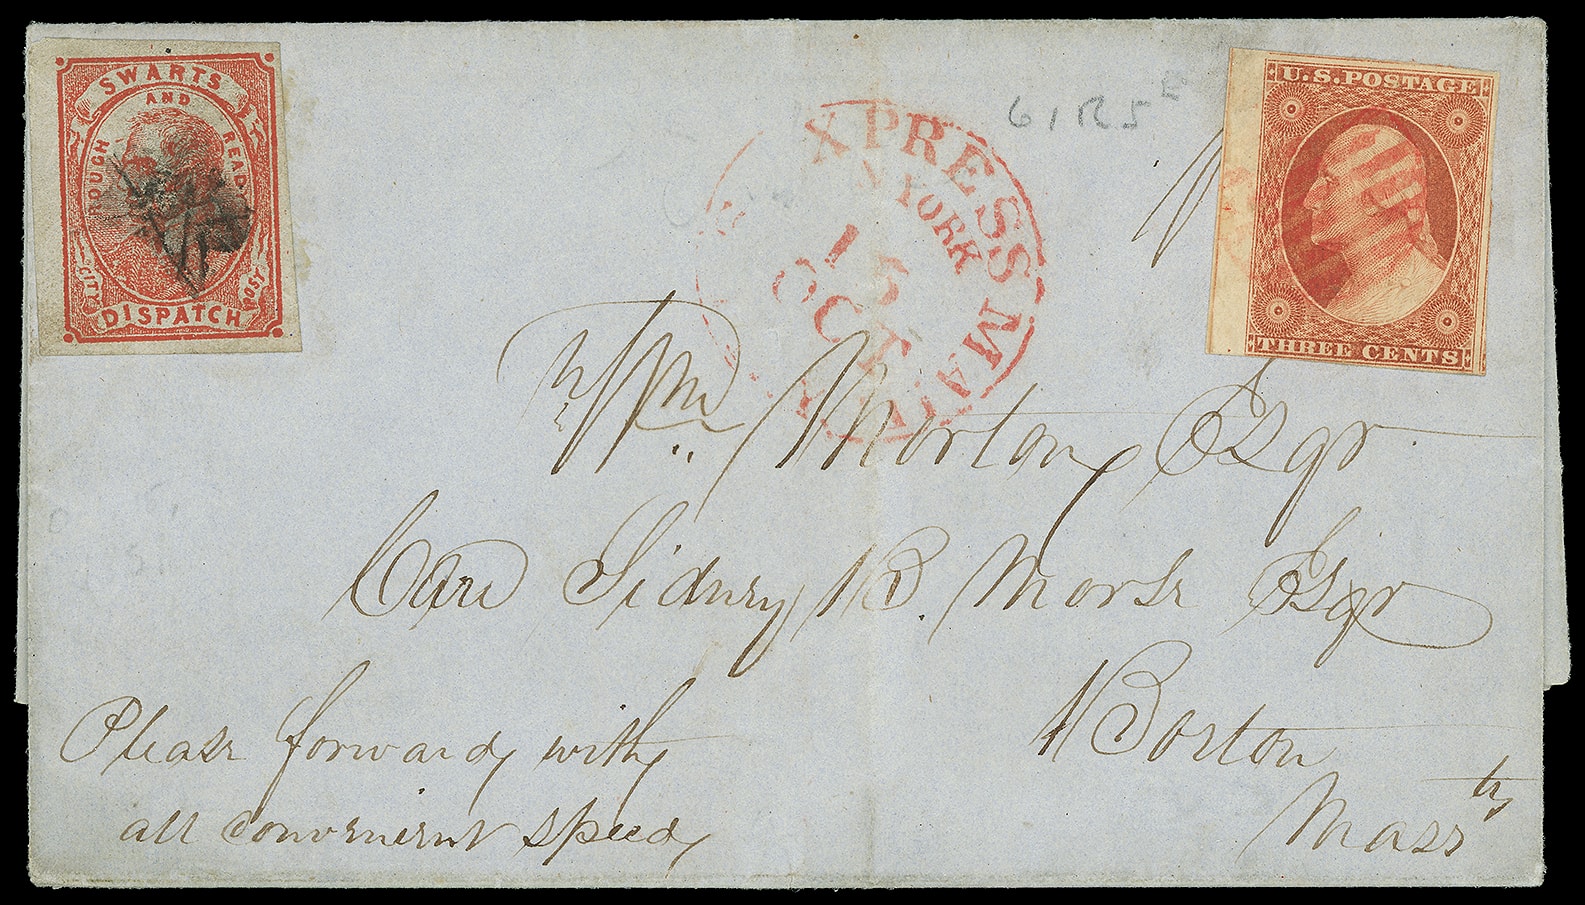 SWARTS
AND
ROUGH READY
CITY POST
DISPATCH
EXPRESS MAIL
N YORK
15
OCT
N.Y.
U.S. POSTAGE
THREE CENTS
61R5E
Wm. Morton Esqr
Care Sidney B. Morse Esqr
Boston
Massts
Please forward with
all convenient speed